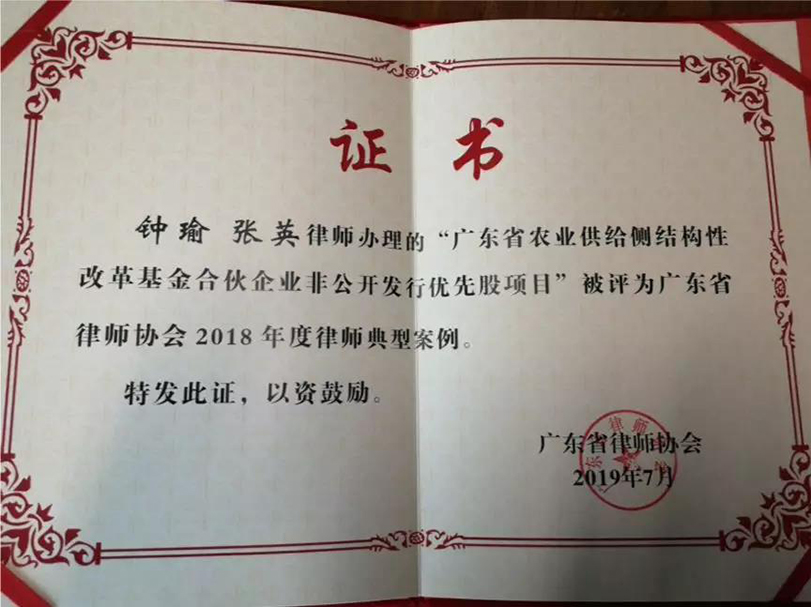 证书
钟瑜 张英律师办理的“广东省农业供给侧结构性
改革基金合伙企业非公开发行优先股项目”被评为广东省
律师协会2018年度律师典型案例。
特发此证，以资鼓励。
广东省律师协会
2019年7月